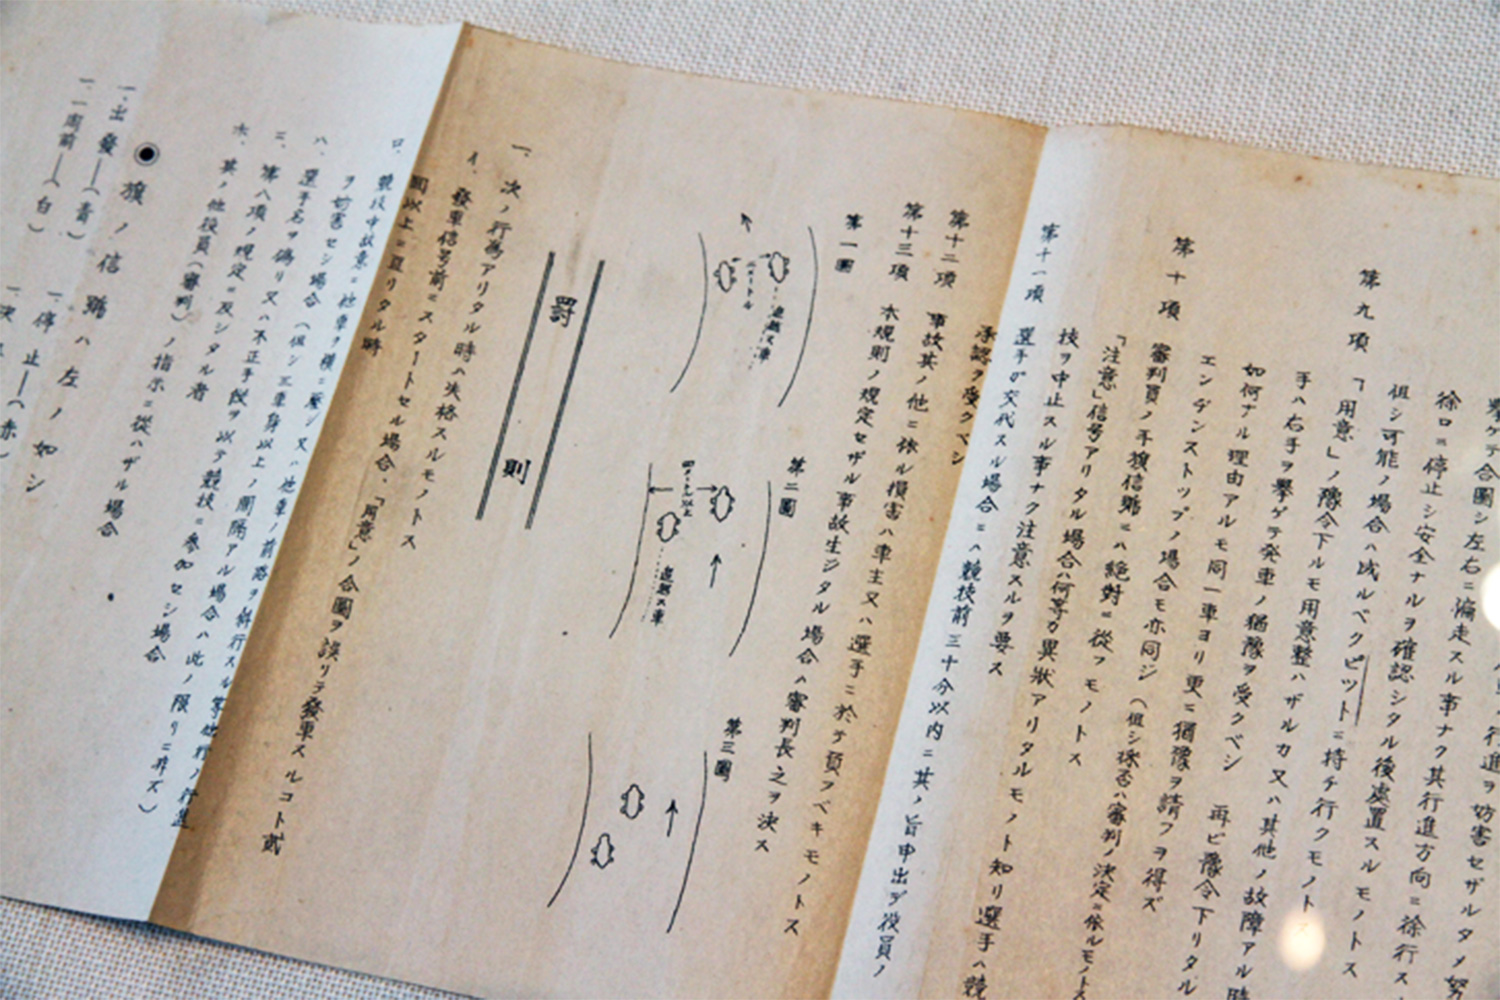 擧ゲテ合圖シ左右ニ偏走スル事ナク其行進方向ニ徐行ス
徐ロニ停止シ安全ナルヲ確認シタル後處置スルモノトス
但シ可能ノ場合ハ成ルベクピツトニ持チ行クモノトス
第九項
「用意」ノ豫令下ルモ用意整ハザルカ又ハ其他ノ故障アル時
手ハ右手ヲ擧ゲテ発車ノ猶豫ヲ受クベシ 再ビ豫令下リタル
如何ナル理由アルモ同一車ヨリ更ニ猶豫ヲ請フヲ得ズ
エンヂンストツプノ場合モ亦同ジ（但シ採否ハ審判ノ決定ニ依ルモノトス
第十項
審判員ノ手旗信號ニハ絶對ニ從フモノトス
「注意」信号アリタル場合ハ何等カ異狀アリタルモノト知リ選手ハ競
技ヲ中止スル事ナク注意スルヲ要ス
第十一項
選手ガ交代スル場合ニハ競技前三十分以内ニ其ノ旨申出デ役員ノ
承認ヲ受クベシ
第十二項
事故其ノ他ニ依ル損害ハ車主又ハ選手ニ於テ負フベキモノトス
第十三項
本規則ノ規定セザル事故生ジタル場合ハ審判長之ヲ決ス
第一圖
二メートル
追越ス車
第二圖
四メートル以上
追越ス車
第三圖
罰則
一、次ノ行為アリタル時ハ失格スルモノトス
イ、發車信号前ニスタートセル場合、「用意」ノ合圖ヲ誤リテ發車スルコト貳
回以上ニ亘リタル時
ロ、競技中故意ニ他車ヲ横ニ壓シ又ハ他車ノ前路ヲ斜行スル等他車ノ行進
ヲ妨害セシ場合（但シ三車身以上ノ間隔アル場合ハ此ノ限リニ非ズ）
ハ、選手名ヲ偽リ又ハ不正手段ヲ以テ競技ニ参加セシ場合
ニ、第八項ノ規定ニ反シタル者
ホ、其ノ他役員（審判）ノ指示ニ從ハザル場合
◉旗ノ信號ハ左ノ如シ
一、出發―（青）
一、停止―（赤）
一、一周前―（白）